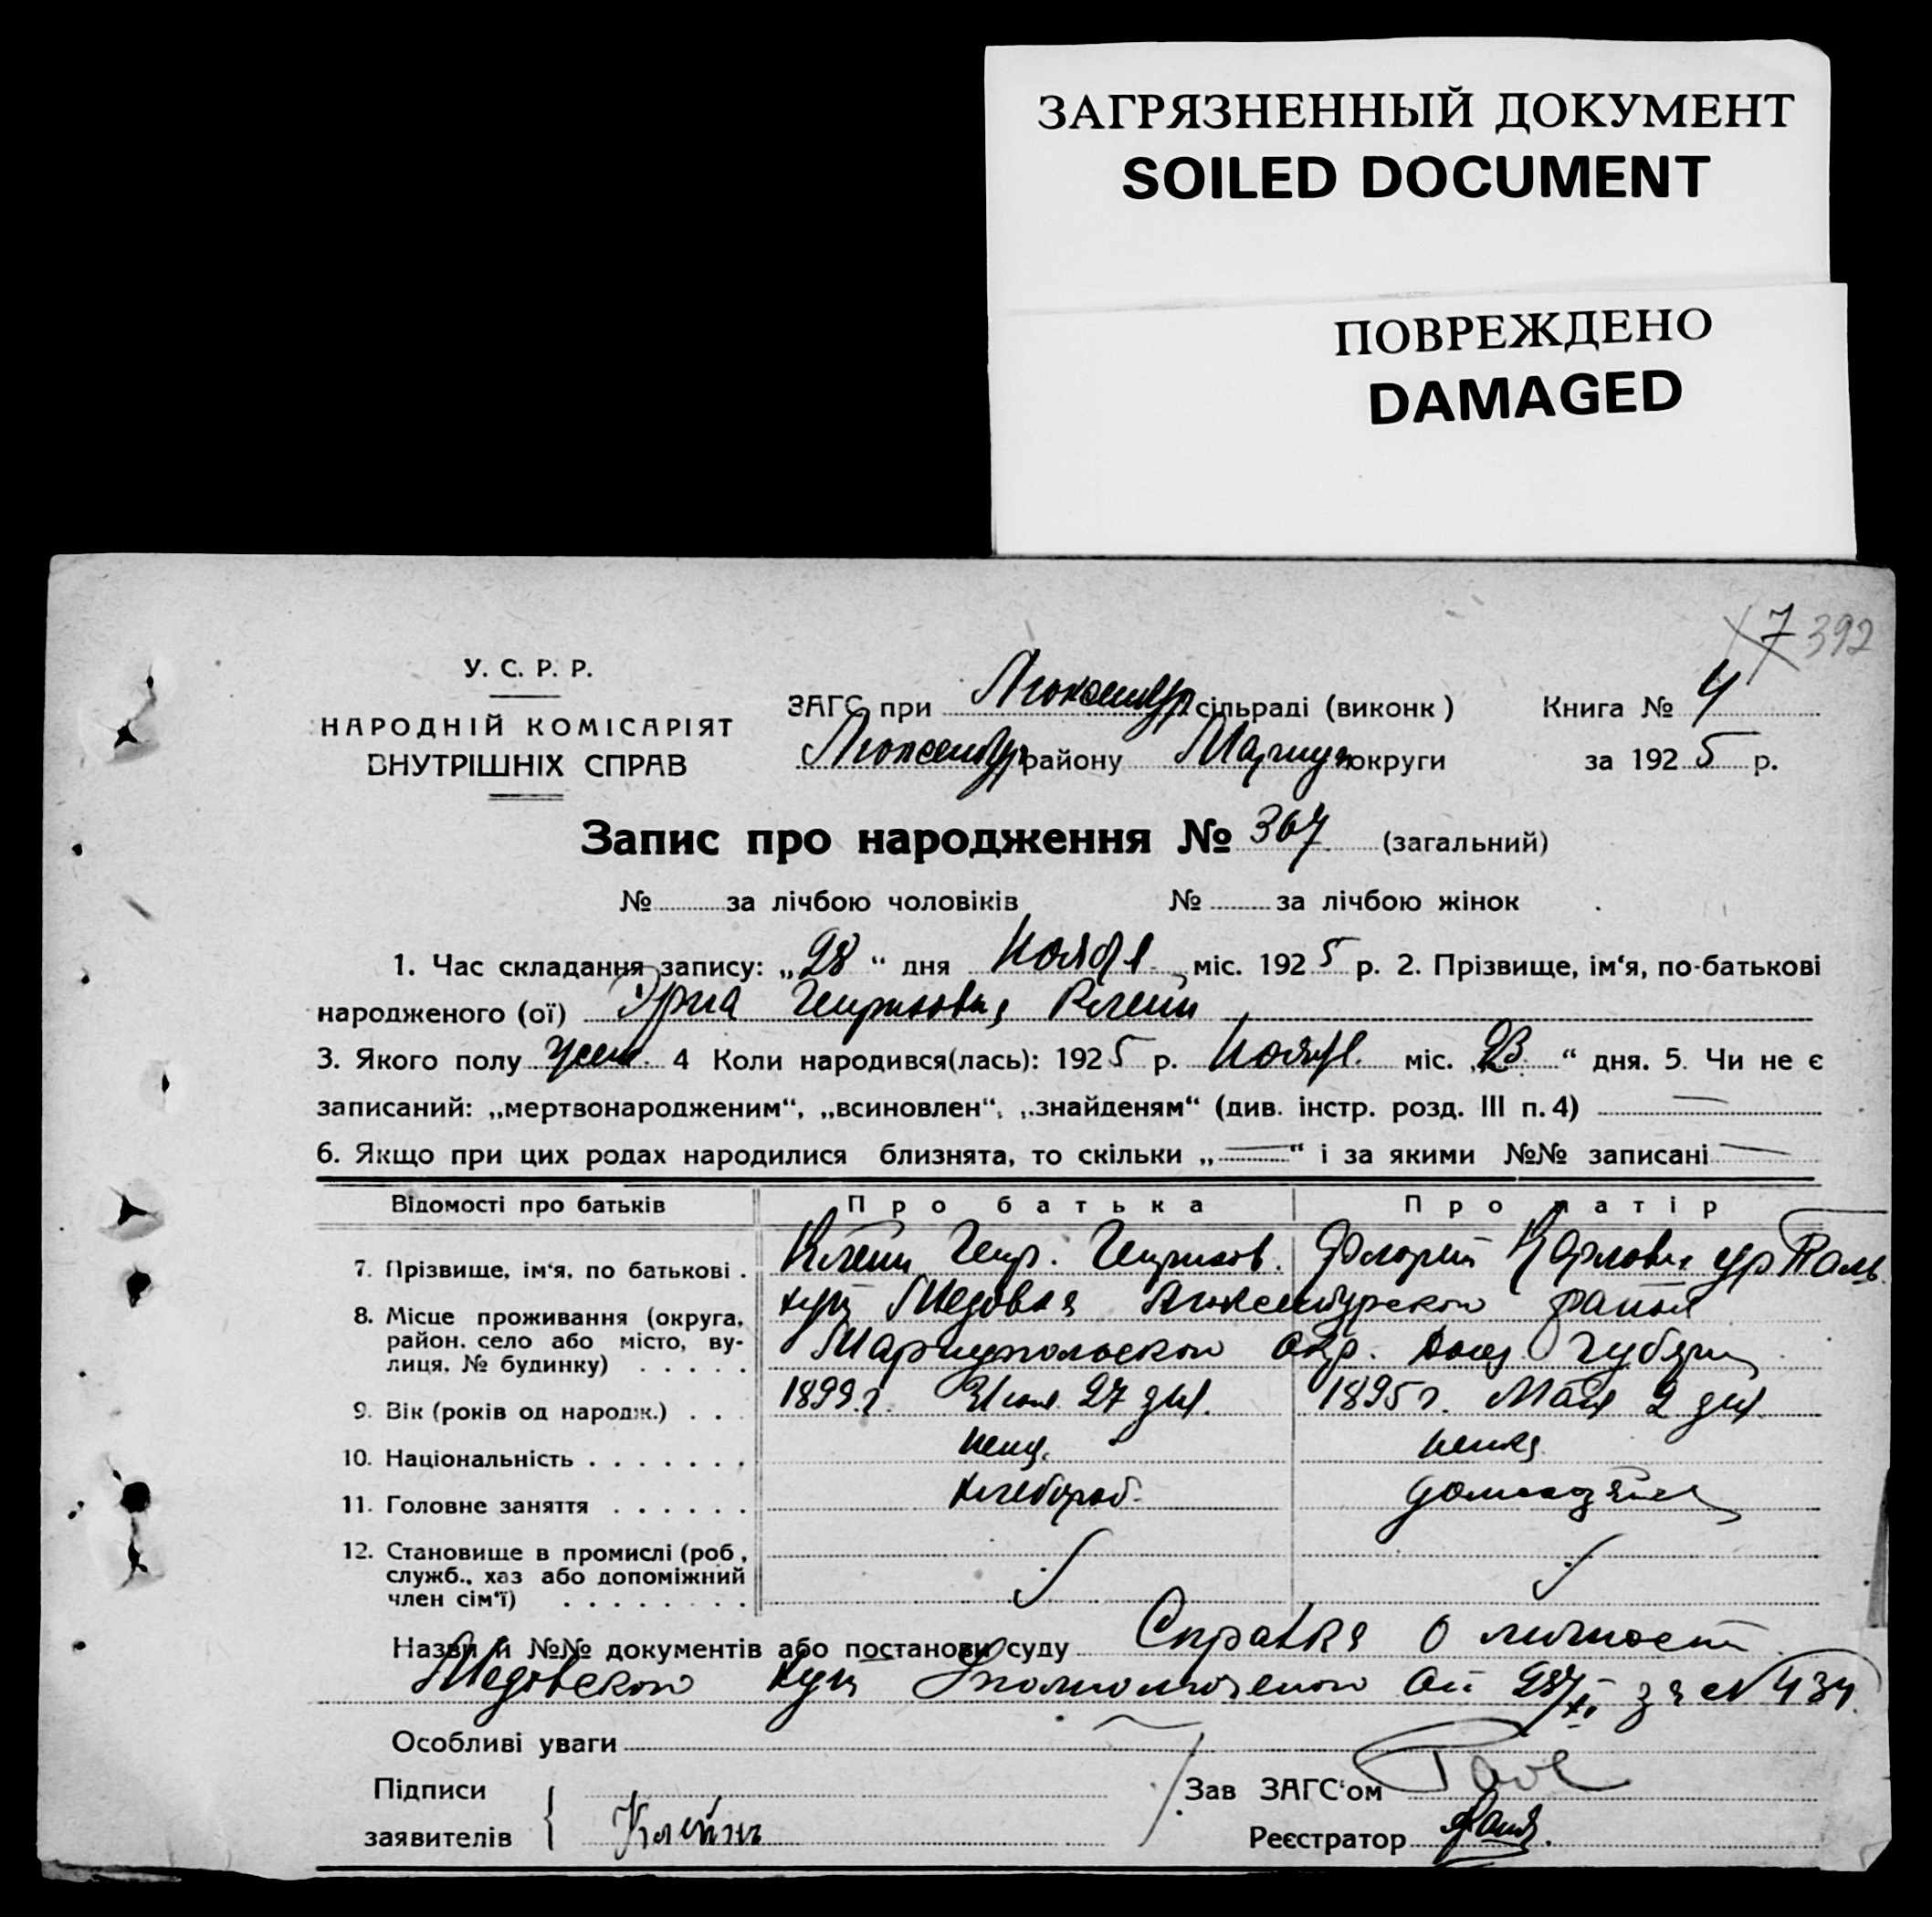 ЗАГРЯЗНЕННЫЙ ДОКУМЕНТ
SOILED DOCUMENT
ПОВРЕЖДЕНО
DAMAGED
7 392
У. С. Р. Р.
НАРОДНІЙ КОМІСАРІЯТ
ВНУТРІШНІХ СПРАВ
ЗАГС при Люксембур сільраді (виконк) Книга № 4
Люксембур району Мариуп округи за 1925 р.
Запис про народження № 367 (загальний)
№ за лічбою чоловіків № за лічбою жінок
1. Час складання запису: „28“ дня Ноября міс. 1925 р. 2. Прізвище, ім‘я, по-батькові
народженого (ої) Эрна Генриховна Клейн
3. Якого полу жен. 4 Коли народився(лась): 1925 р. Ноября міс. „23“ дня. 5. Чи не є
записаний: „мертвонародженим“, „всиновлен“, „знайденям“ (див. інстр. розд. III п. 4) —
6. Якщо при цих родах народилися близнята, то скільки „—“ і за якими №№ записані —
Відомості про батьків Про батька Про матір
7. Прізвище, ім‘я, по батькові . Клейн Генр. Генрихов. Карловна ур
8. Місце проживання (округа, район, село або місто, ву-лиця, № будинку) . . . . .
хут Медовая Люксембургского района
Мариупольского окр. Донец. губерн
9. Вік (років од народж.) . . . 1899 г. Июля 27 дня. 1895 г. Мая 2 дня
10. Національність . . . . . . . немц. немка
11. Головне заняття . . . . . . хлебороб. домохозяйка
12. Становище в промислі (роб, служб., хаз або допоміжний член сім‘ї) . . . . . . . .
Назви й №№ документів або постанови суду Справка о личности
Медовского хут Уполномоченого от 28/XI за № 434.
Особливі уваги
Підписи Зав ЗАГС‘ом
заявителів Клейнъ Реєстратор